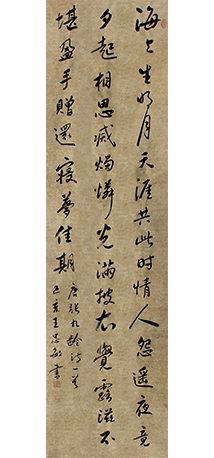 海上生明月天涯共此时情人怨遥夜竟
夕起相思灭烛怜光满披衣觉露滋不
堪盈手赠还寝梦佳期
唐张九龄诗一首